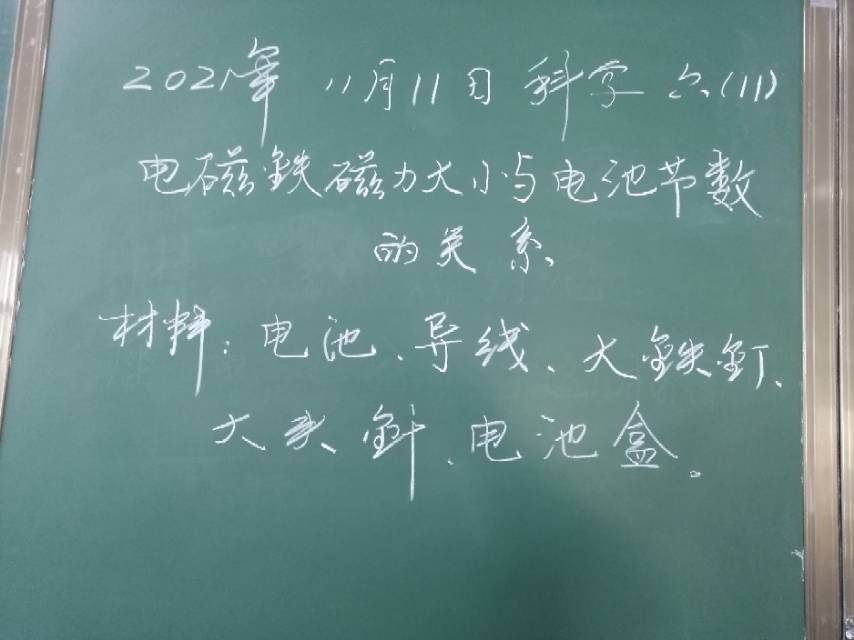 2021年 11月11日 科学 六(11)
电磁鉄磁力大小与电池节数
的关系
材料：电池、导线、大鉄釘、
大头針、电池盒。